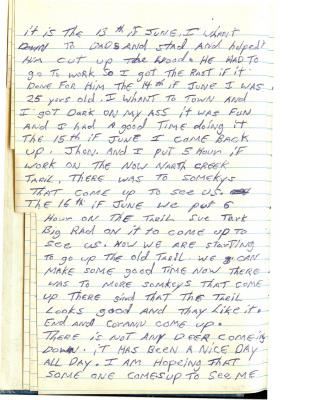 it is the 13th if JUNE. I WHANT
DOWN TO DADS AND STAD AND HELPEDT
HIM CUT UP the WOOD. HE HAD TO
go TO WORK SO I GOT THE RAST if iT
DONE FOR HIM THE 14th if JUNE I WAS
25 YORS OLD. I WHANT TO TOWN AND
I GOT DARK ON MY ASS it WAS FUN
AND I HAD A good TIME doing it
THE 15th if JUNE I COME BACK
UP. JHON AND I PUT 5 HOUR if
WORK ON THE NOW NARTH CREEK
TRAIL. THERE WAS TO SOMEKYS
THAT COME UP TO SEE US.
THE 16th if JUNE WE PUT 5
HOUR ON THE TRAIL SUE TORK
Big RAD ON it TO COME UP TO
SEE US. NOW WE ARE STARTING
TO go UP THE OLD TRAIL. WE CAN
MAKE SOME good TIME NOW THERE
WAS TO MORE SOMKEYS THAT COME
UP THERE AND THAT THE TRAIL
LOOKS good AND THAY LIKE it.
END AND COME UP.
THERE IS NOT ANY DEER COMEING
DOWN. iT HAS BEEN A NICE DAY
ALL DAY. I AM HOPEING THAT
SOME ONE COMES UP TO SEE ME